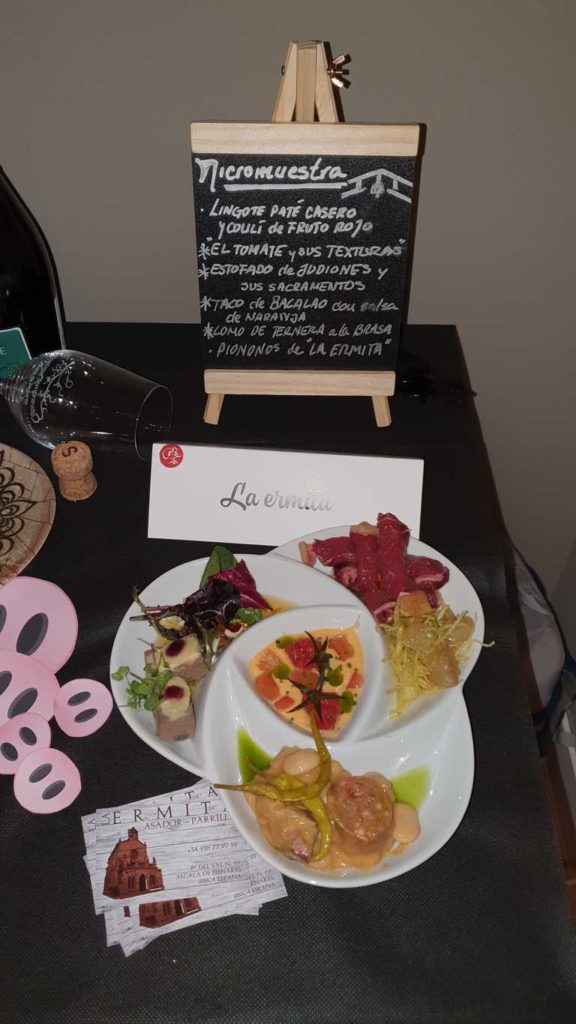 Micromuestra
· LINGOTE PATÉ CASERO
y COULÍ de FRUTO ROJO
* "EL TOMATE y SUS TEXTURAS"
* ESTOFADO de JUDIONES y
SUS SACRAMENTOS
* TACO de BACALAO con salsa
de NARANJA
* LOMO DE TERNERA a la BRASA
· PIONONOS de "LA ERMITA"
La ermita
ERMIT
ASADOR - PARRILL
+34 918 77 97 97
Pº DEL VAL N. 69
ALCALÁ DE HENARES
28804 ESPAÑA
S